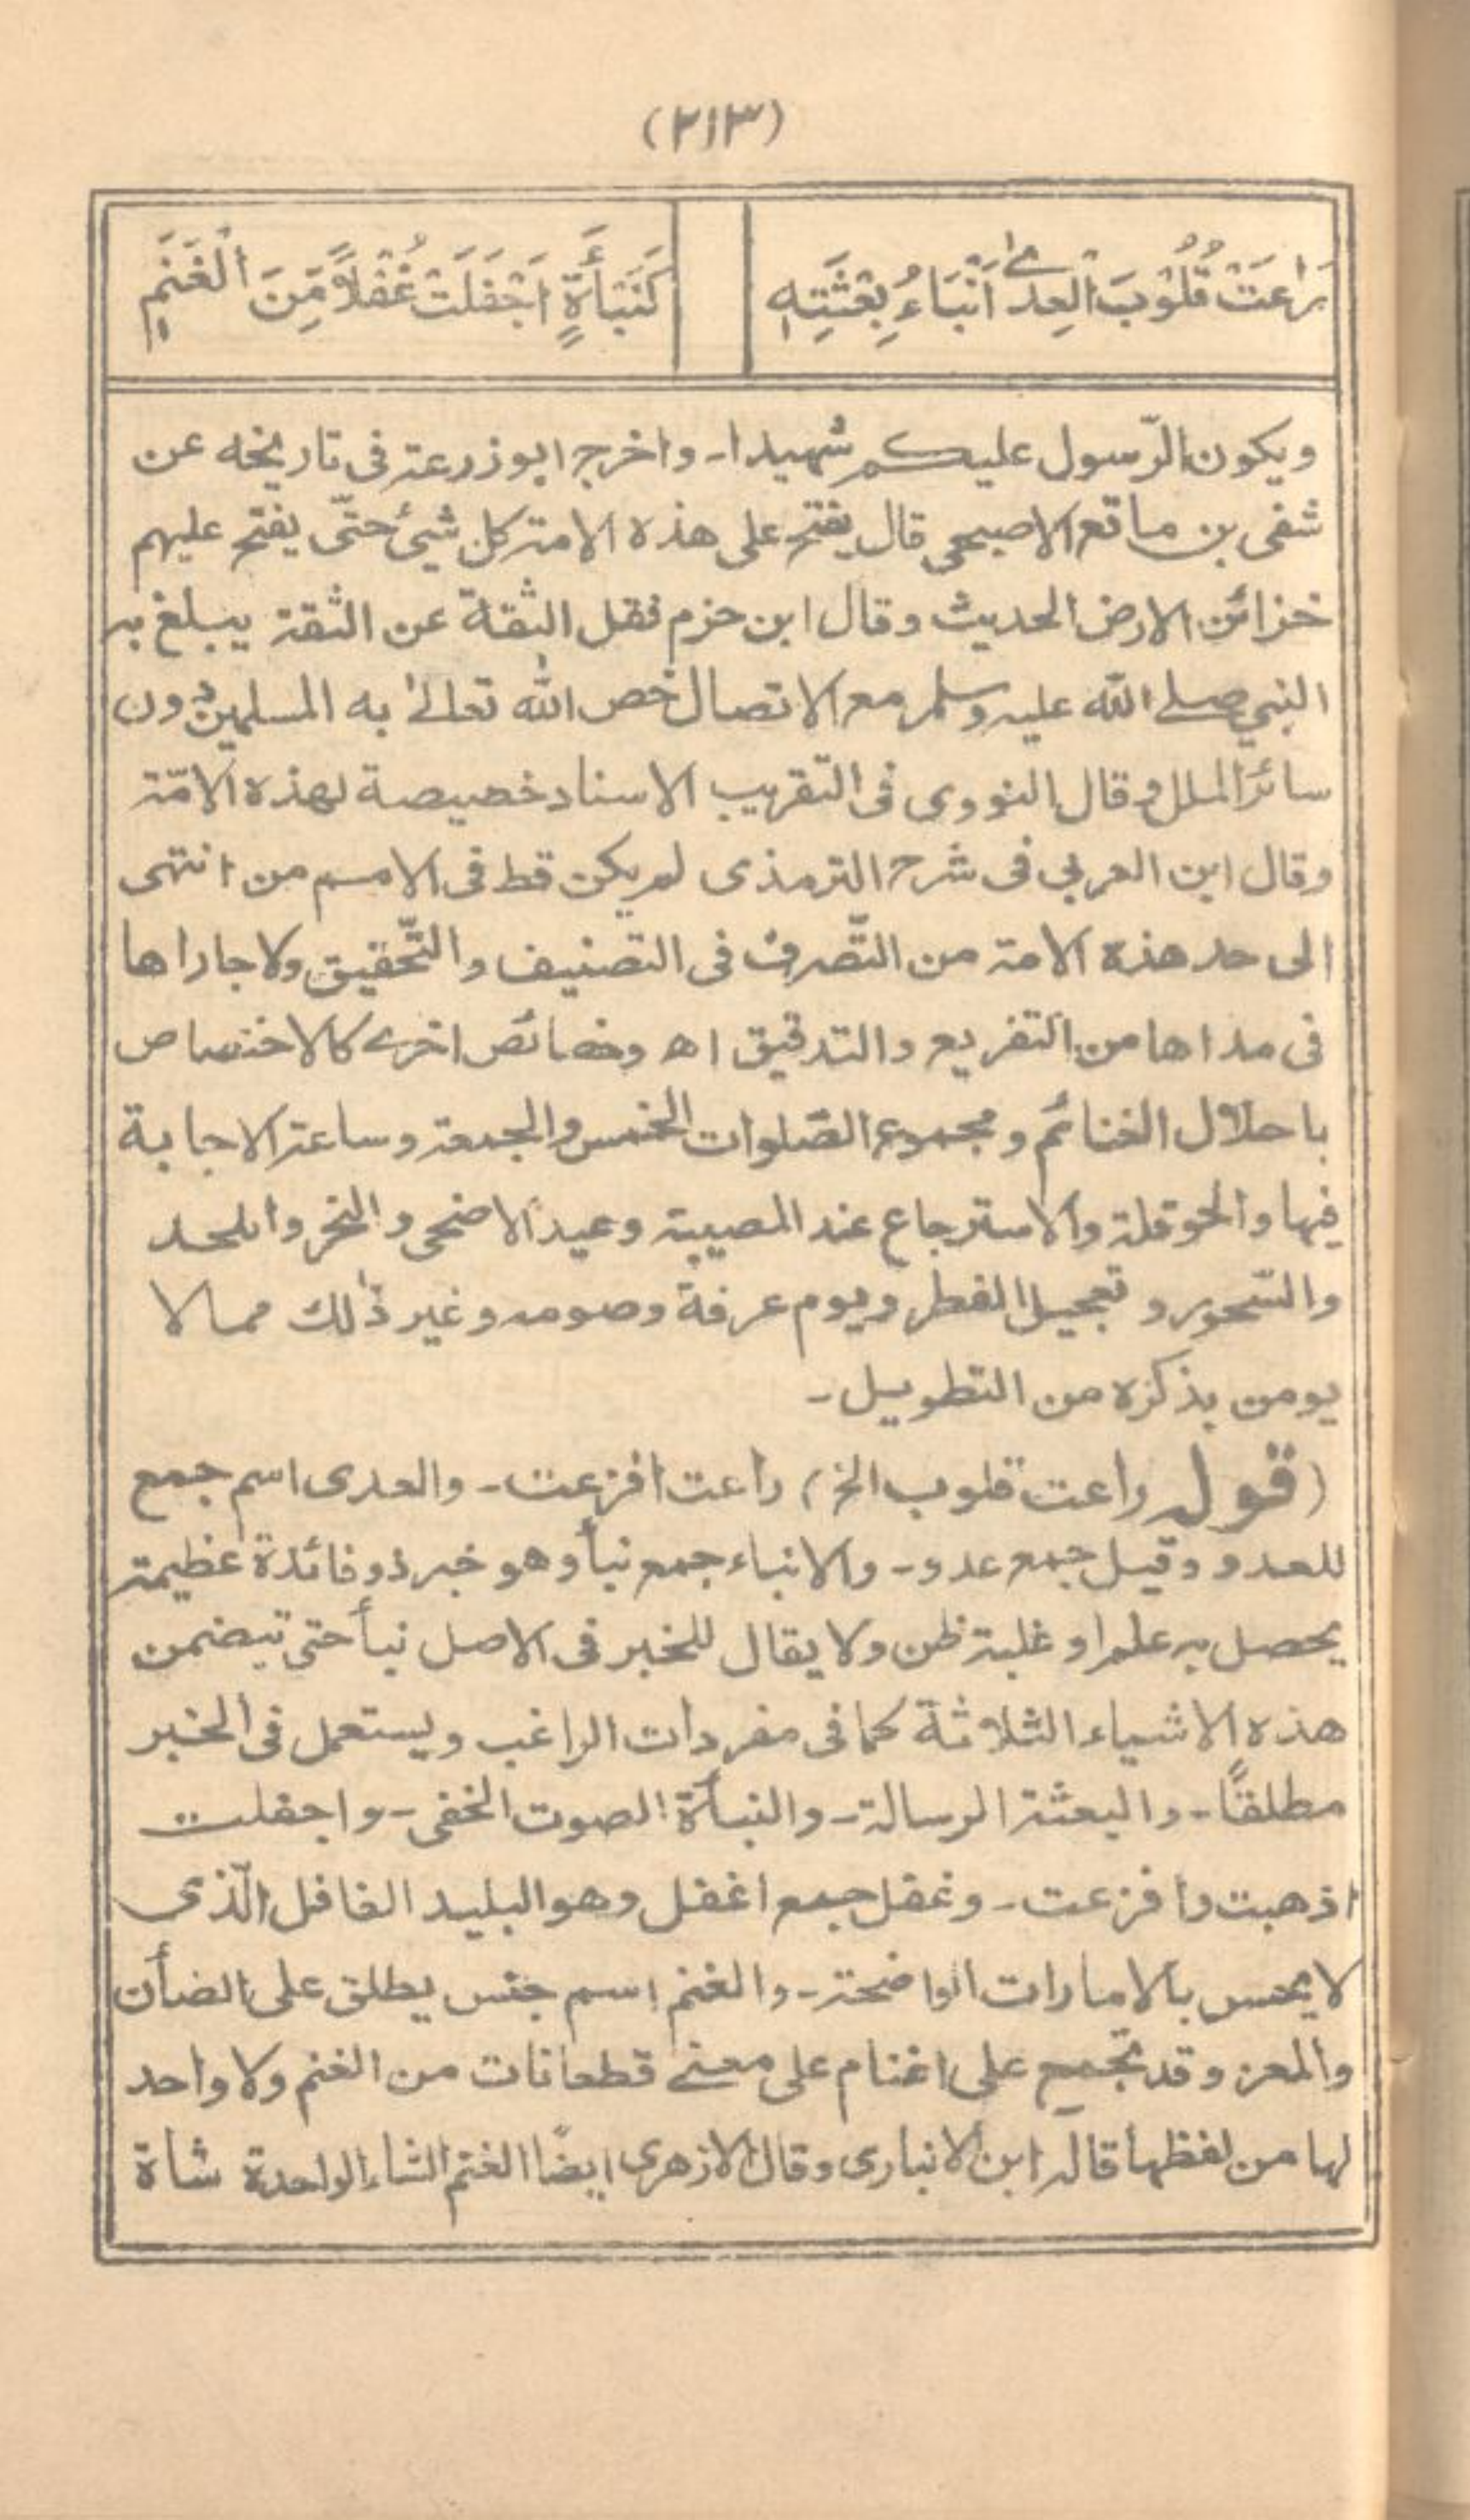 (٢١٣)
رَاعَتْ قُلُوْبَ الْعِدٰى اَنْبَاءُ بِعْثَتِهٖ
كَنَبْأَةٍ اَجْفَلَتْ غُفْلًا مِّنَ الْغَنَمِ
ويكون الرّسول عليكم شهيدا۔ واخرج ابو زرعة فى تاريخه عن
شفى بن ماتع الاصبحى قال يفتح على هذه الامة كل شيئ حتّى يفتح عليهم
خزائن الارض الحديث وقال ابن حزم فقل الثقة عن الثقة يبلغ به
النبي صلے الله عليه وسلم مع الاتصال خص الله تعالىٰ به المسلمين دون
سائر الملل وقال النووى فى التقريب الاسناد خصيصة لهذه الامّة
وقال ابن العربي فى شرح الترمذى لم يكن قط فى الامم من انتهى
الى حد هذه الامة من التّصرف فى التصنيف والتّحقيق ولا جاراها
فى مداها من التفريع والتدقيق اھ وخصائص اخرے كالاختصاص
باحلال الغنائم ومجموع الصّلوات الخمس والجمعة وساعة الاجابة
فيها والحوقلة والاسترجاع عند المصيبة وعيد الاضحى والنحر واللحد
والسّحور وتعجيل الفطر ويوم عرفة وصومه وغير ذٰلك مما لا
يومن بذكره من التطويل۔
(قوله راعت قلوب الخ) راعت افزعت۔ والعدى اسم جمع
للعدو وقيل جمع عدو۔ والانباء جمع نبأ وهو خبر ذو فائدة عظيمة
يحصل به علم او غلبة ظن ولا يقال للخبر فى الاصل نبأ حتى تيضمن
هذه الاشياء الثلاثة كما فى مفردات الراغب ويستعمل فى الخبر
مطلقًا۔ والبعثة الرسالة۔ والنبأة الصوت الخفى۔ واجفلت
اذهبت وافزعت۔ وغفل جمع اغفل وهو البليد الغافل الّذى
لا يحس بالامارات الواضحة۔ والغنم اسم جنس يطلق على الضأن
والمعز وقد تجمع على اغنام على معنے قطعانات من الغنم ولا واحد
لها من لفظها قاله ابن الانبارى وقال الازهرى ايضًا الغنم الشاء الواحدة شاة